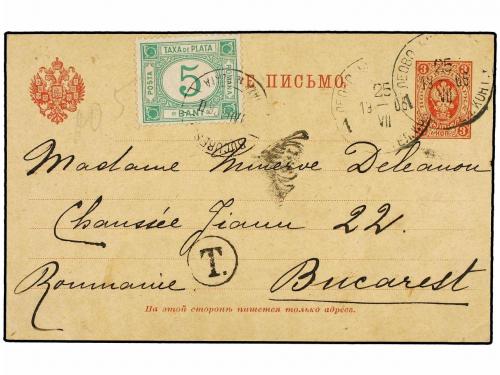 TAXA DE PLATA
POSTA
ROMANA
5
BANI
Е ПИСЬМО.
3
3
25
VII
1
Madame Minerve Deleanou
Chaussée Jianu 22.
T.
Roumanie. Bucarest
На этой сторонѣ пишется только адресъ.